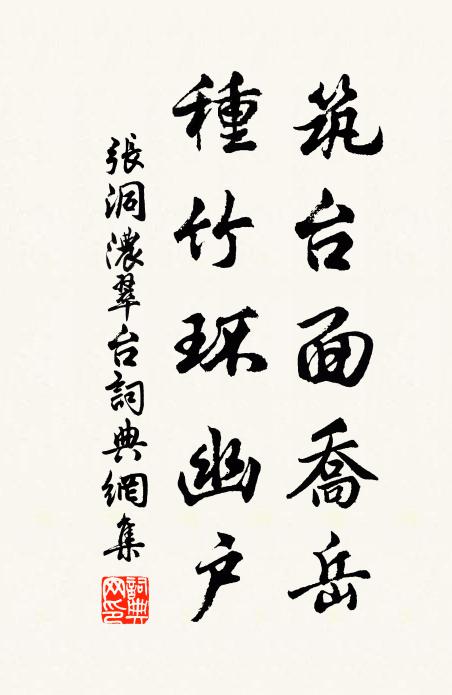 筑台面喬岳
種竹环幽户
張洞濃翠台詞典網集
詞典網印